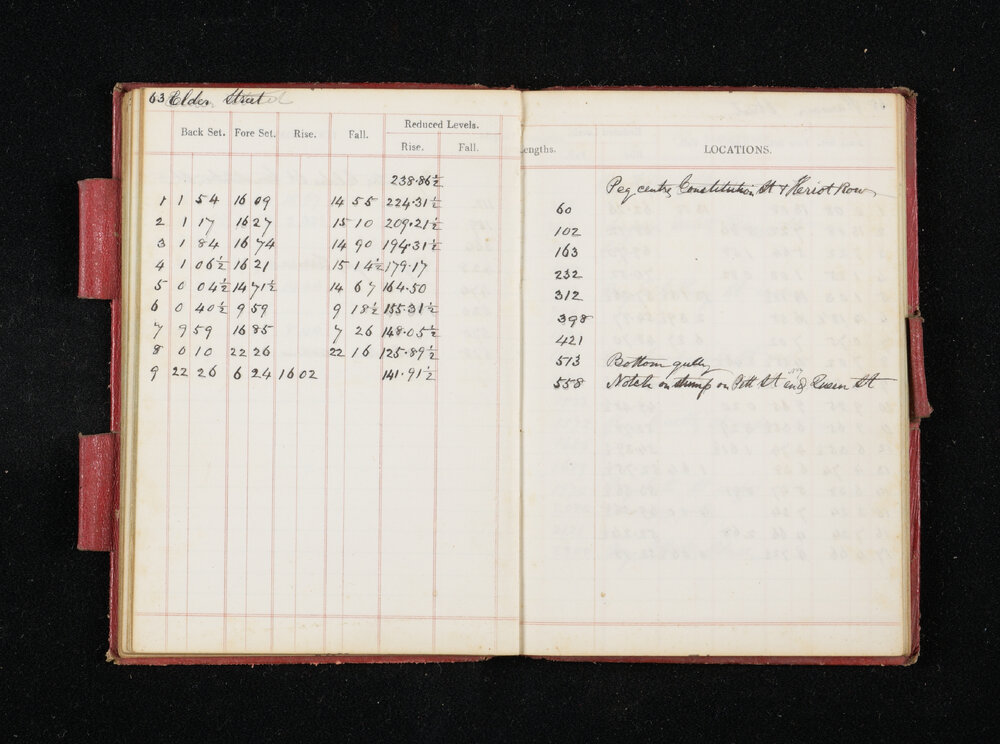 63 Elder Street
Back Set. Fore Set. Rise. Fall. Reduced Levels. Rise. Fall. engths. LOCATIONS.
238·86½ Peg centre Constitution St & Heriot Row
1 1 54 16 09 14 55 224·31½ 60
2 1 17 16 27 15 10 209·21½ 102
3 1 84 16 74 14 90 194·31½ 163
4 1 06½ 16 21 15 14½ 179·17 232
5 0 04½ 14 71½ 14 67 164·50 312
6 0 40½ 9 59 9 18½ 155·31½ 398
7 9 59 16 85 7 26 148·05½ 421
8 0 10 22 26 22 16 125·89½ 513 Bottom gully
9 22 26 6 24 16 02 141·91½ 558 Notch on stump on Pitt St and Queen St